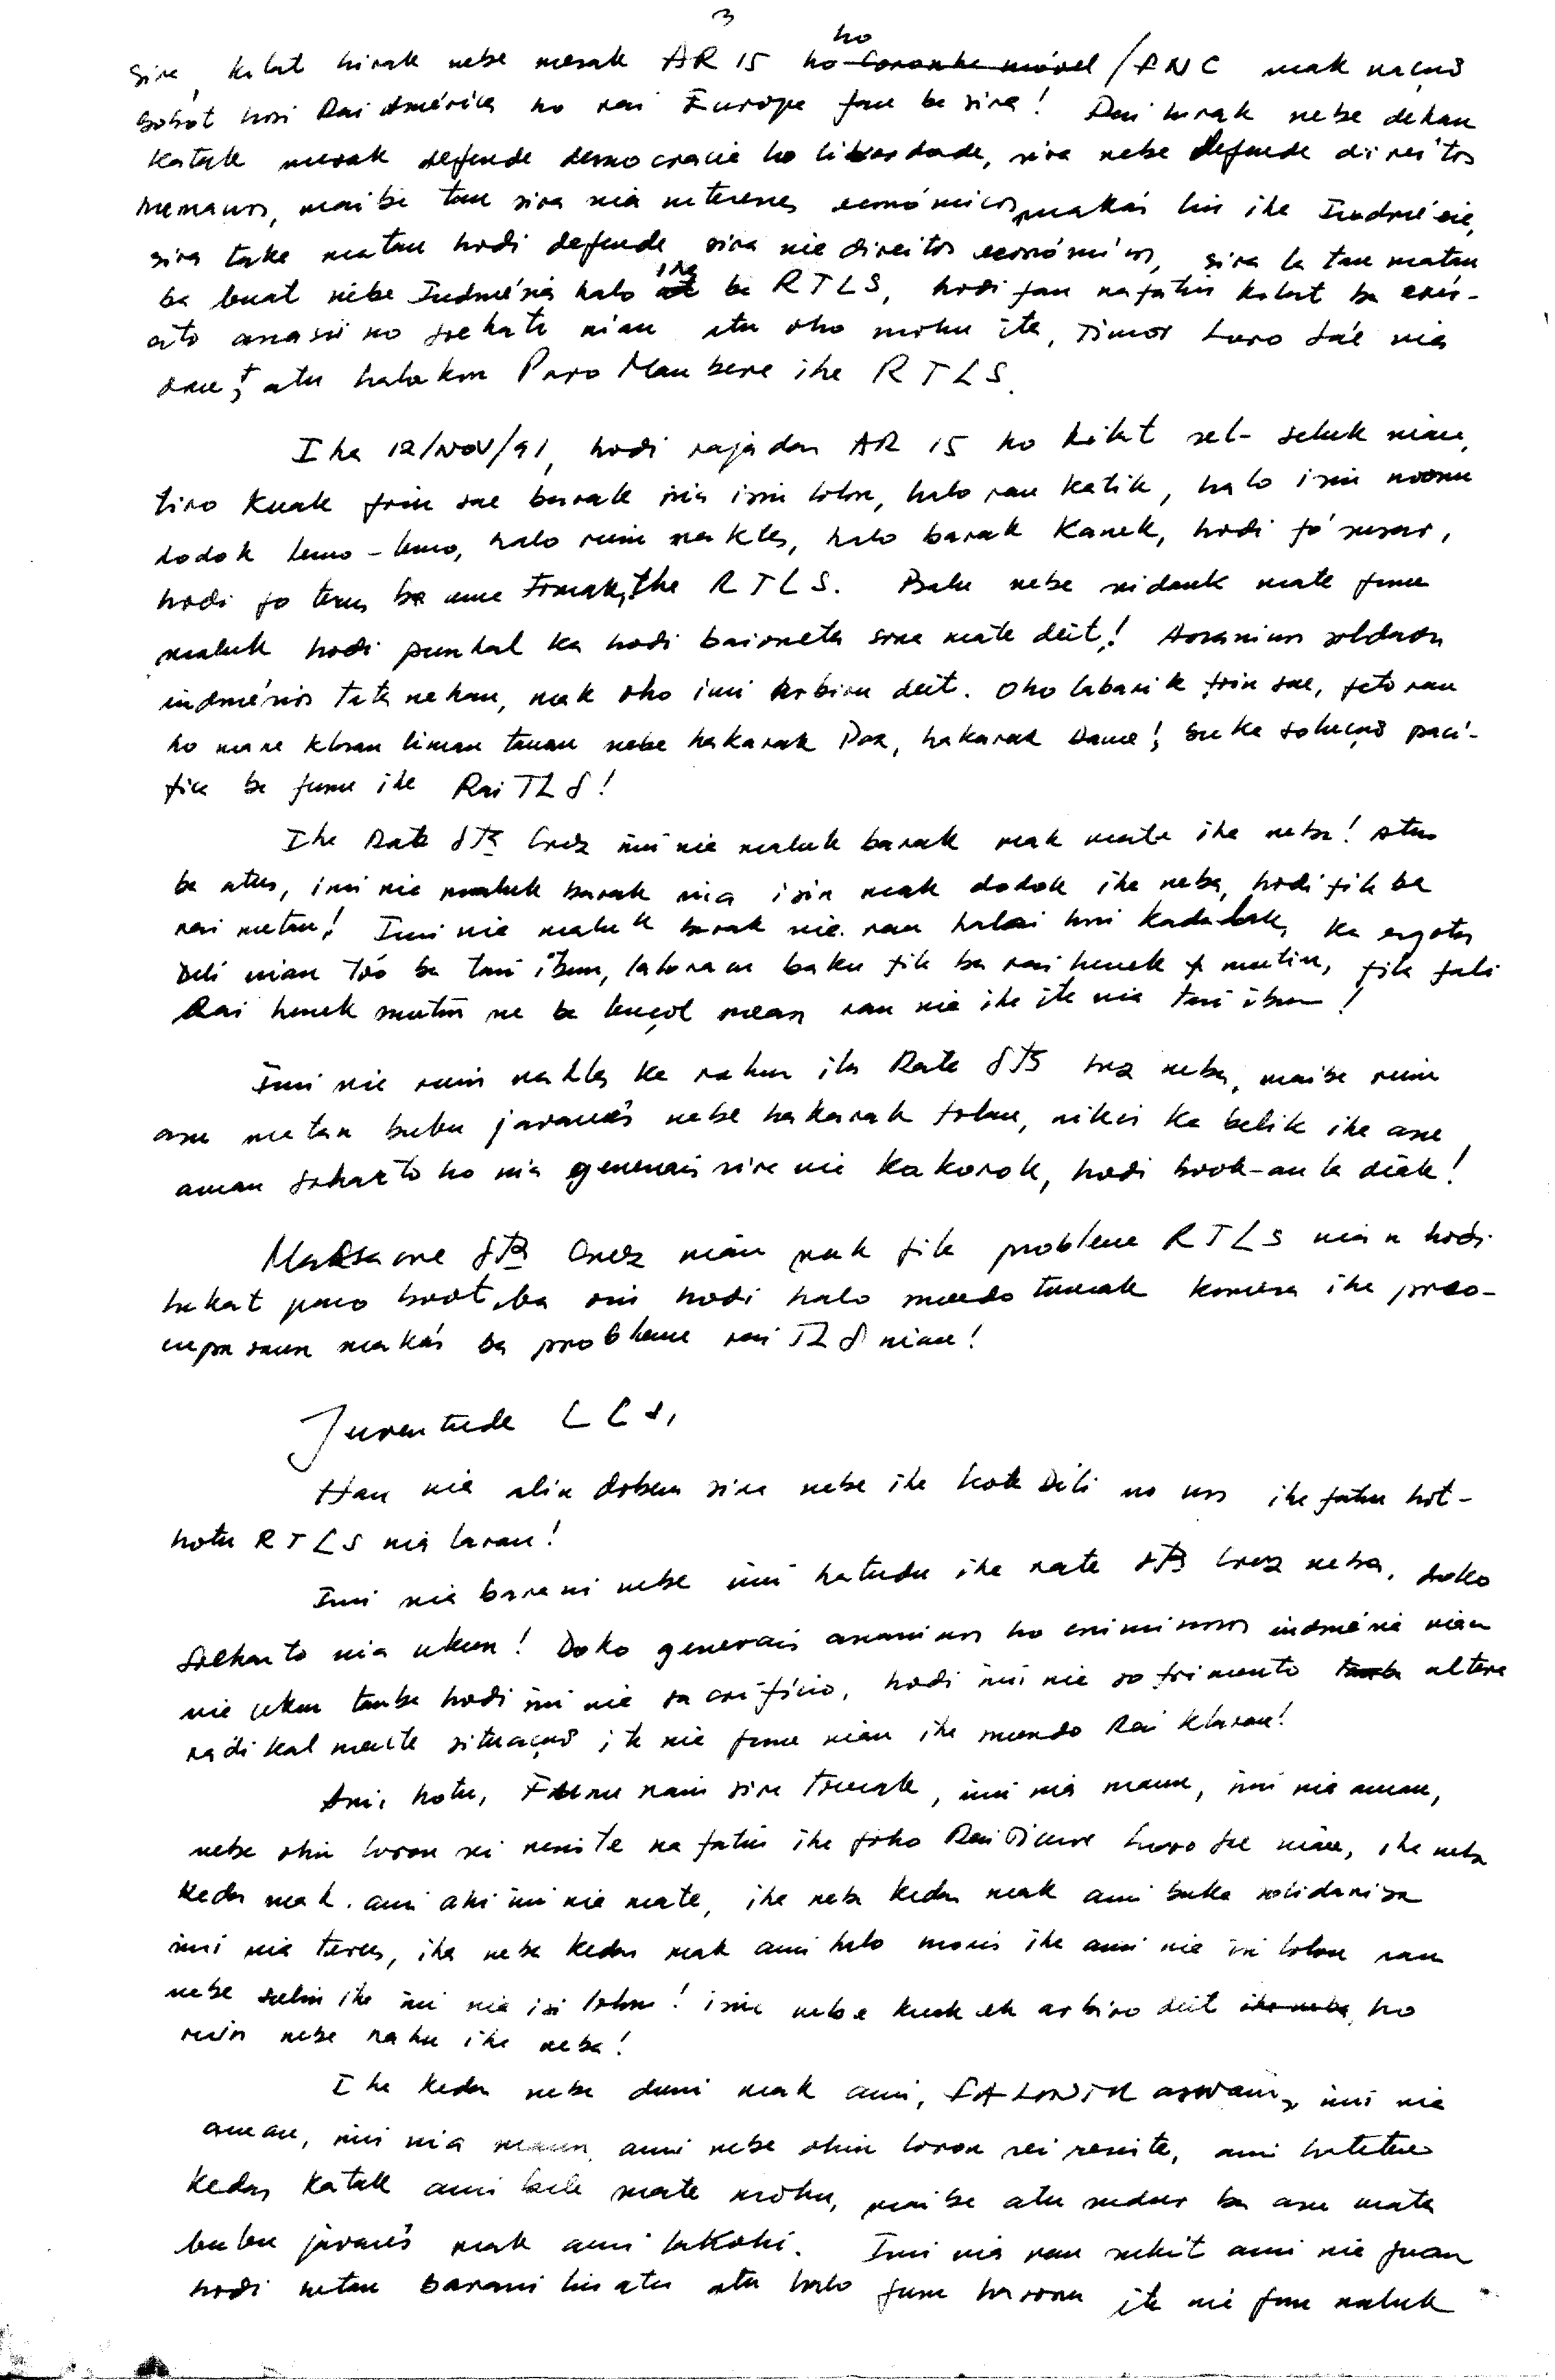 3
sira, kilat hirak nebe mesak AR 15 ho / ANC mak naçoẽs
sosot husi Rai América no rai Europa fan ba sira! Rai hirak nebe dehan
katak mesak defende democracia ho liberdade, sira nebe defende direitos
humanos, maibe tan sira nia interesses económicos makás liu iha Indonésia,
sira taka matan hodi defende sira nia direitos económicos, sira la tau matan
ba buat nebe Indonésia halo iha ba RTLS, hodi fan nafatin kilat ba exér-
cito assassino Soeharto nian atu oho mohu ita, Timor Loro Sa'e nia
oan, atu halakon Povo Maubere iha RTLS.
Iha 12/NOV/91, hodi rajadas AR 15 ho kilat sel-seluk nian,
tiro kuak foin sae barak nia isin lolon, halo ran katik, halo isin
dodok lemo-lemo, halo ruin nakles, halo barak kanek, hodi fó susar,
hodi fo terus ba uma tomak, iha RTLS. Balu nebe sidauk mate funu
maluk hodi punhal ka hodi baioneta sona mate deit! Assassinos soldados
indonésios tata nehan, mak oho imi arbiru deit. Oho labarik foin sae, feto ran
ho mane klosan liman tanan nebe hakarak Paz, hakarak Dame, buka solução pací-
fica ba funu iha Rai TLS!
Iha Rate Sta Cruz imi nia maluk barak mak mate iha neba! Atus
ba atus, imi nia maluk barak nia isin mak dodok iha neba, hodi fila ba
rai metan! Imi nia maluk barak nia ran halai husi kadalak, ka esgotos
Dili nian too ba tasi ibun, laloran baku fila ba rai henek mutin, fila fali
Rai henek mutin ne ba lençol mean ran nia iha ita nia tasi ibun!
Imi nia ruin nakles ka rahun iha Rate Sta Cruz neba, maibe ruin
asu metan bubu javanes nebe hakarak tolan, nikis ka belik iha asu
aman Soharto ho nia generais sira nia kakorok, hodi book-an la diak!
Massacre Sta Cruz nian mak fila problema RTLS nian hodi
hakat passo boot ba oin hodi halo mundo tomak komesa iha preo-
cupasaun makás ba problema rai TLS nian!
Juventude LLS,
Hau nia alin doben sira nebe iha kota Dili no mos iha fatin hot-
hotu RTLS nia laran!
Imi nia barani nebe imi hatudu iha rate Sta Cruz neba, doko
Soeharto nia ukun! Doko generais assassinos ho criminosos indonésia nian
nia ukun tanba hodi imi nia sacrifício, hodi imi nia sofrimento altera
radikalmente situação ita nia funu nian iha mundo Rai klaran!
Ami hotu, Funu nain sira tomak, imi nia maun, imi nia aman,
nebe ohin loron sei resiste nafatin iha foho Rai Timor Loro Sae nian, iha neba
kedas mak ami ahi imi nia mate, iha neba kedas mak ami buka solidariza
imi nia terus, iha neba kedas mak ami halo moris iha ami nia isi lolon ran
nebe sulin iha imi nia isi lolon! isin nebe kuak ek arbiro deit ho
ruin nebe rahu iha neba!
Iha kedas nebe duni mak ami, FALINTIL aswain, imi nia
aman, imi nia maun, ami nebe ohin loron sei resiste, ami hatetu
kedas katak ami bele mate mohu, maibe atu sudur ba asu mata
bubu javanes mak ami lakohi. Imi nia ran sukit ami nia fuan
hodi netan barani liu atu atu halo funu hasoru ita nia funu maluk